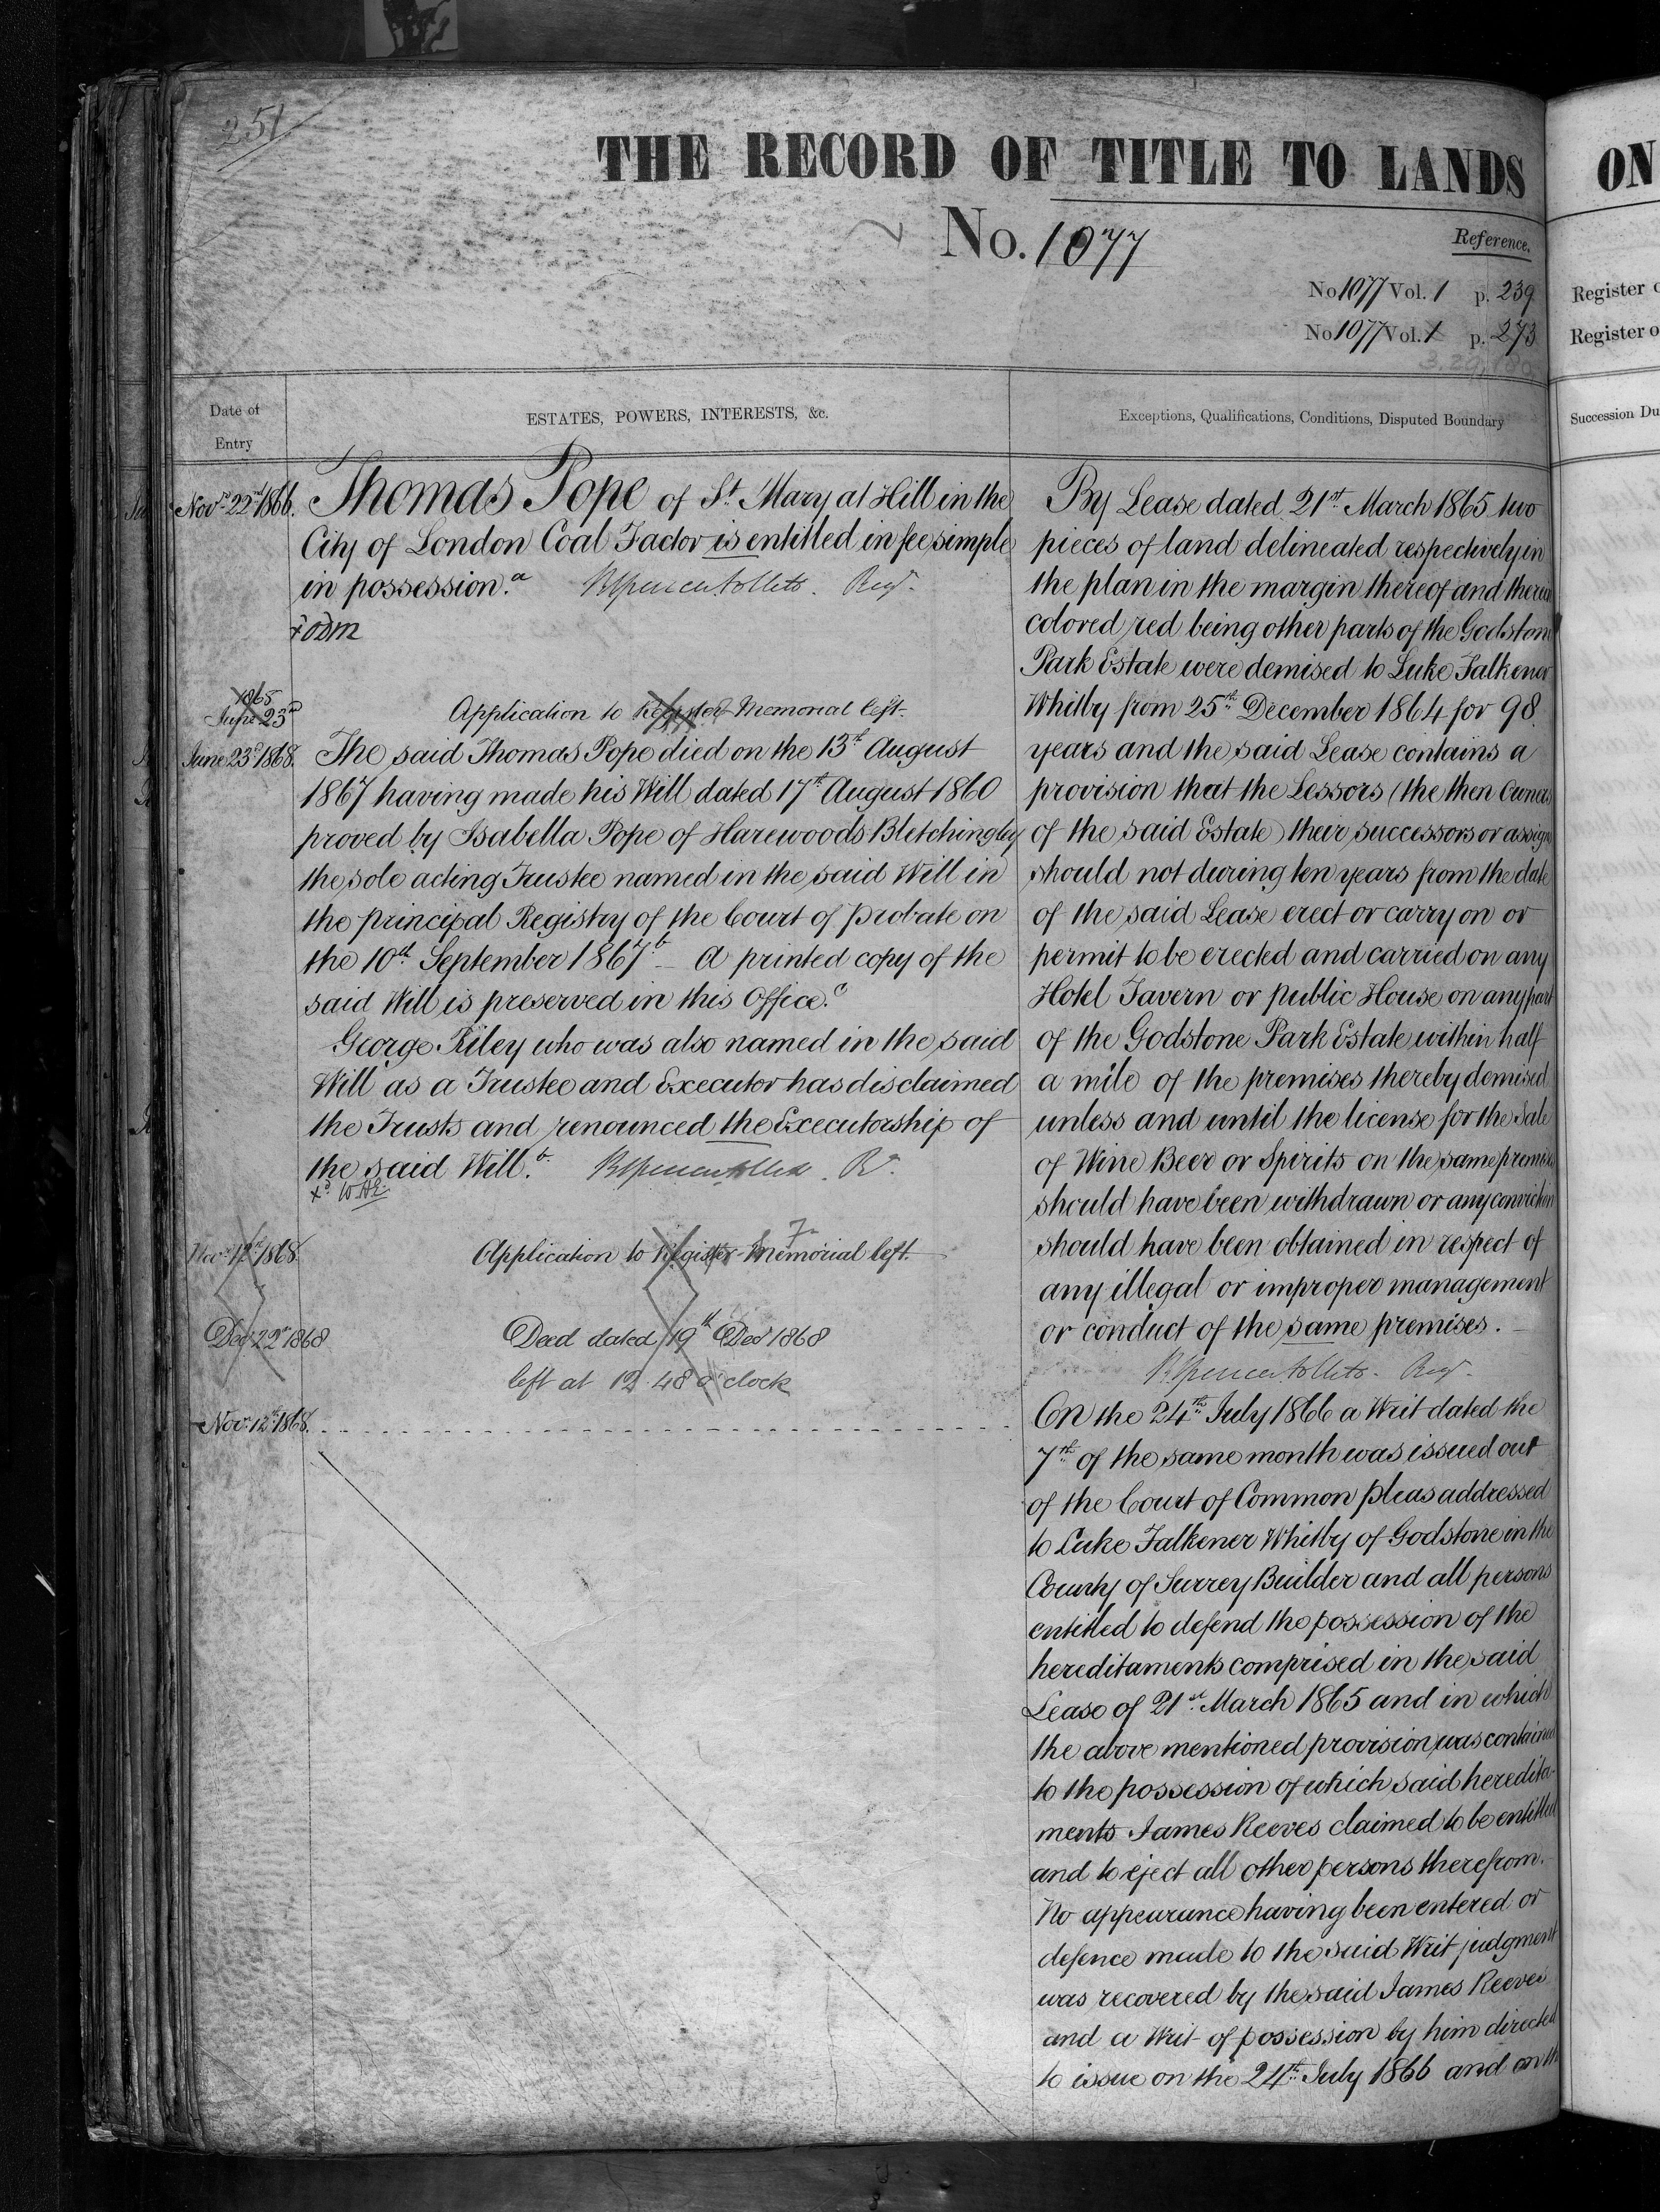 251
THE RECORD OF TITLE TO LANDS
No. 1077
Reference.
No 1077 Vol. 1 p. 239
No 1077 Vol. 1 p. 273
Date of Entry
ESTATES, POWERS, INTERESTS, &c.
Exceptions, Qualifications, Conditions, Disputed Boundary
Novr. 22nd 1866.
Thomas Pope of St. Mary at Hill in the
City of London Coal Factor is entitled in fee simple
in possession.a Regr.
1865
June 23rd
Application to Register Memorial left.
June 23d 1868.
The said Thomas Pope died on the 13th August
1867 having made his Will dated 17th August 1860
proved by Isabella Pope of Harewoods Bletchingley
the sole acting Trustee named in the said Will in
the principal Registry of the Court of Probate on
the 10th September 1867b – A printed copy of the
said Will is preserved in this Office.c
George Riley who was also named in the said
Will as a Trustee and Executor has disclaimed
the Trusts and renounced the Executorship of
the said Will.b Rr.
Nov. 12th 1868.
Application to Register Memorial left.
Dec 22nd 1868
Deed dated 19th Decr 1868
left at 12.48 o'clock
Nov. 12th 1868.
By Lease dated 21st March 1865 two
pieces of land delineated respectively in
the plan in the margin thereof and therein
colored red being other parts of the Godstone
Park Estate were demised to Luke Falkener
Whitby from 25th December 1864 for 98
years and the said Lease contains a
provision that the Lessors (the then Owners
of the said Estate) their successors or assigns
should not during ten years from the date
of the said Lease erect or carry on or
permit to be erected and carried on any
Hotel Tavern or public House on any part
of the Godstone Park Estate within half
a mile of the premises thereby demised
unless and until the license for the Sale
of Wine Beer or Spirits on the same premises
should have been withdrawn or any conviction
should have been obtained in respect of
any illegal or improper management
or conduct of the same premises.
Regr.
On the 24th July 1866 a Writ dated the
7th of the same month was issued out
of the Court of Common pleas addressed
to Luke Falkener Whitby of Godstone in the
County of Surrey Builder and all persons
entitled to defend the possession of the
hereditaments comprised in the said
Lease of 21st March 1865 and in which
the above mentioned provision was contained
to the possession of which said heredita-
ments James Reeves claimed to be entitled
and to eject all other persons therefrom.
No appearance having been entered or
defence made to the said Writ judgment
was recovered by the said James Reeves
and a Writ of possession by him directed
to issue on the 24th July 1866 and on th
ON
Register o
Register o
Succession Du